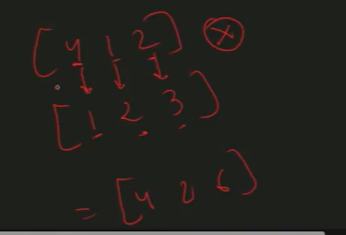 [4 1 2] ⊗
[1 2 3]
= [4 2 6]